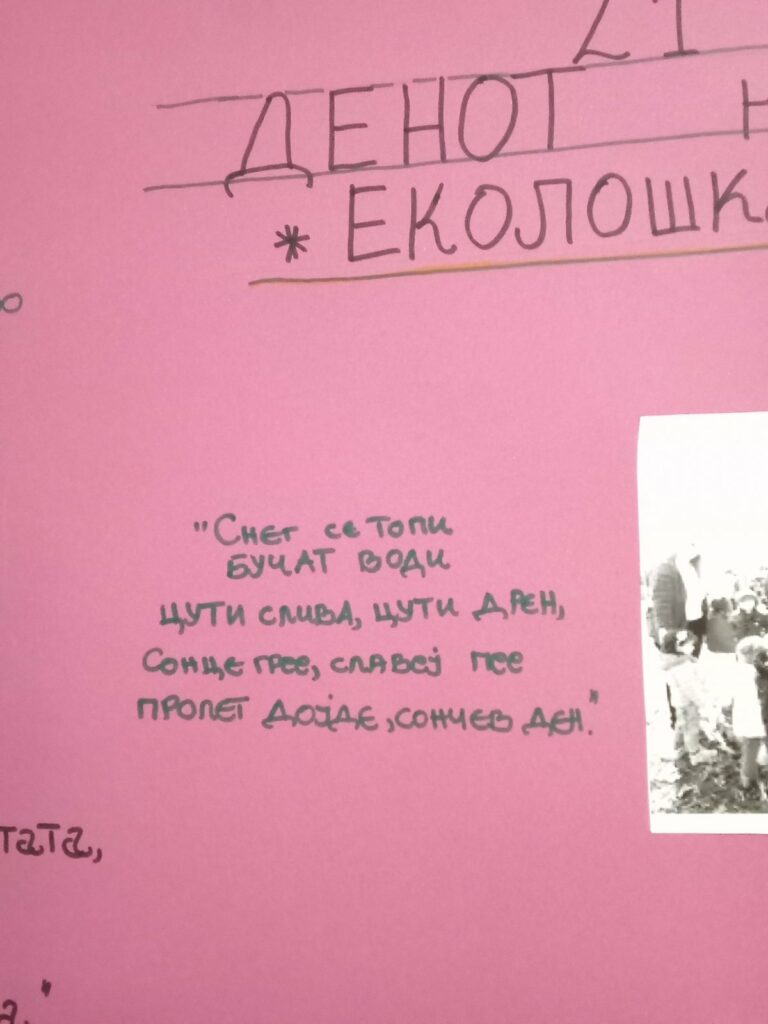 21
ДЕНОТ
* ЕКОЛОШКА
"Снег се топи
БУЧАТ ВОДИ
ЦУТИ СЛИВА, ЦУТИ ДРЕН,
Сонце грее, славеј пее
ПРОЛЕТ ДОЈДЕ, СОНЧЕВ ДЕН."
тата,
а."